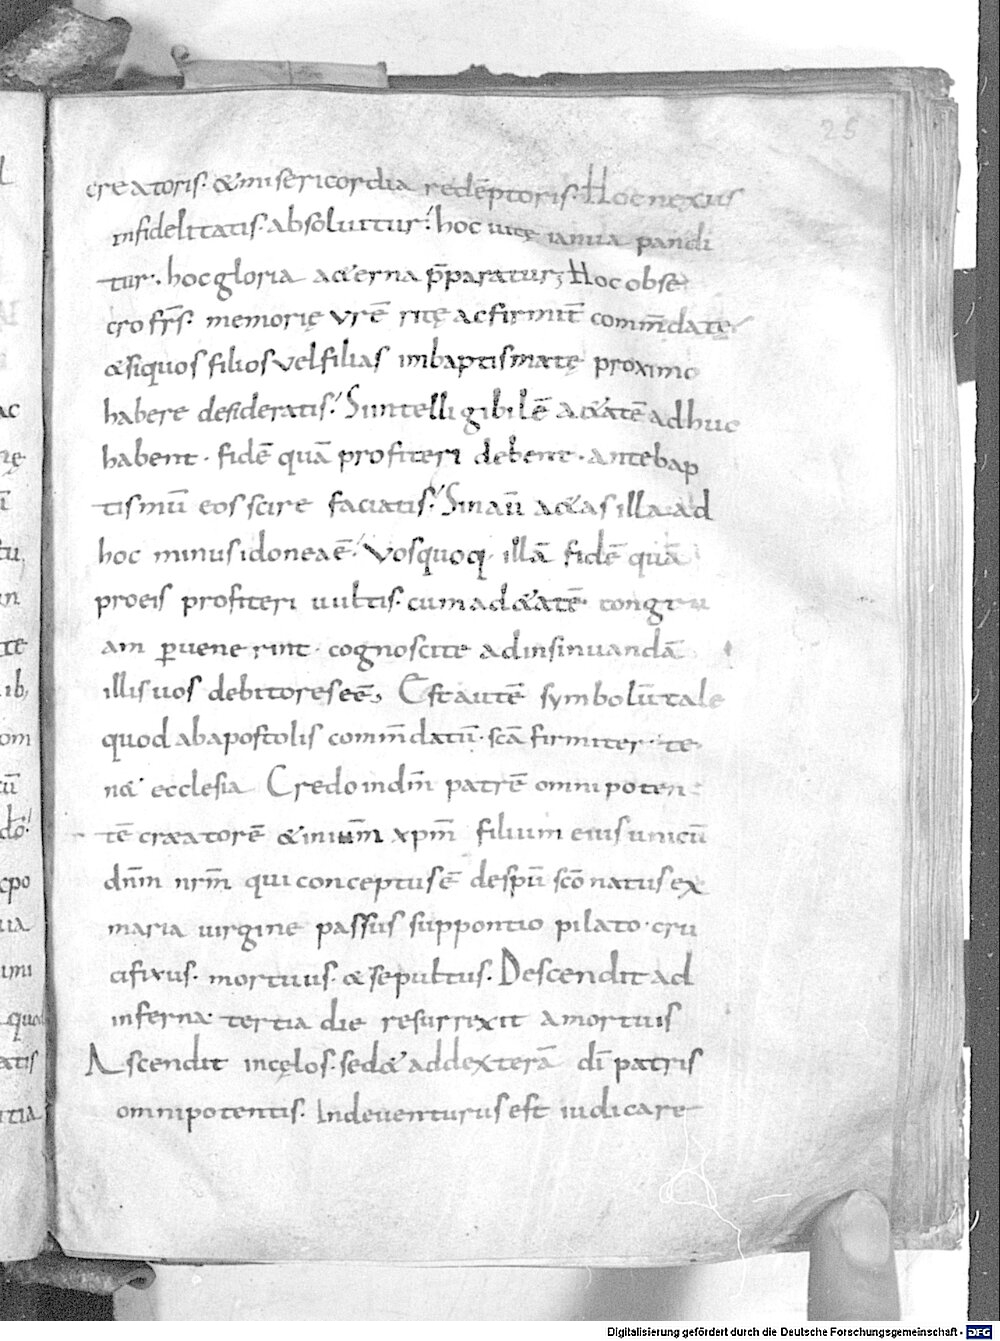 25
creatoris. & misericordia redēptoris. Hoc nexus
infidelitatis. absoluitur. hoc uitę ianua pandi
tur. hoc gloria a&erna p̄paratur; Hoc obse
cro fr̄s. memorię vr̄ē ritę acfirmit̄ comm̄date
& siquos filios vel filias inbaptismatę proximo
habere desideratis. Siintelligibilē a&atē adhuc
habent. fidē quā profiteri debent. antebap
tismū eos scire faciatis. Sinaū a&as illa ad
hoc minus idonea ē. vos quoq illā fidē quā
pro eis profiteri uultis. cum ad &atē congru
am ꝑuenerint. cognoscite adinsinuandā
illis uos debitores eē, Est autē symbolū tale
quod abapostolis comm̄datū. scā firmiter te
n& ecclesia Credo indm̄ patrē omnipoten
tē creatorē & inium̄ xpm̄ filium eius unicū
dn̄m nr̄m qui conceptus ē despū scō natus ex
maria uirgine passus subpontio pilato. cru
cifixus. mortuus. & sepultus. Descendit ad
inferna. tertia die resurrixit amortuis
Ascendit incęlos. sed& addexterā dī patris
omnipotentis. Inde uenturus est iudicare
Digitalisierung gefördert durch die Deutsche Forschungsgemeinschaft - DFG